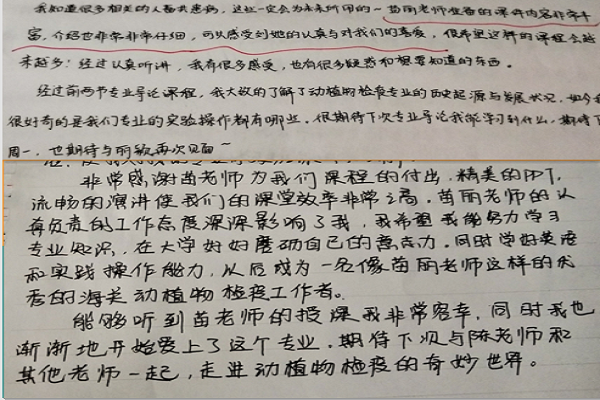 我知道很多相关的人畜共患病，这些一定会为未来所用的~苗丽老师准备的课件内容非常丰
富，介绍也非常非常仔细，可以感受到她的认真与对我们的喜爱，很希望这样的课程会越
来越多！经过认真听讲，我有很多感受，也有很多疑惑和想要知道的东西。
经过前两节专业导论课程，我大致的了解了动植物检疫专业的历史起源与发展状况，如今我
很好奇的是我们专业的实验操作都有哪些。很期待下次专业导论我能学习到什么，期待下
周一，也期待与丽敏再次见面~
非常感谢苗老师为我们课程的付出，精美的PPT，
流畅的演讲使我们的课堂效率非常之高，苗丽老师的认
真负责的工作态度深深影响了我，我希望我能努力学习
专业知识，在大学好好磨砺自己的意志力，同时学好英语
和实践操作能力，以后成为一名像苗丽老师这样的优
秀的海关动植物检疫工作者。
能够听到苗老师的授课我非常容幸，同时我也
渐渐地开始爱上了这个专业，期待下次与陈老师和
其他老师一起，走进动植物检疫的奇妙世界。